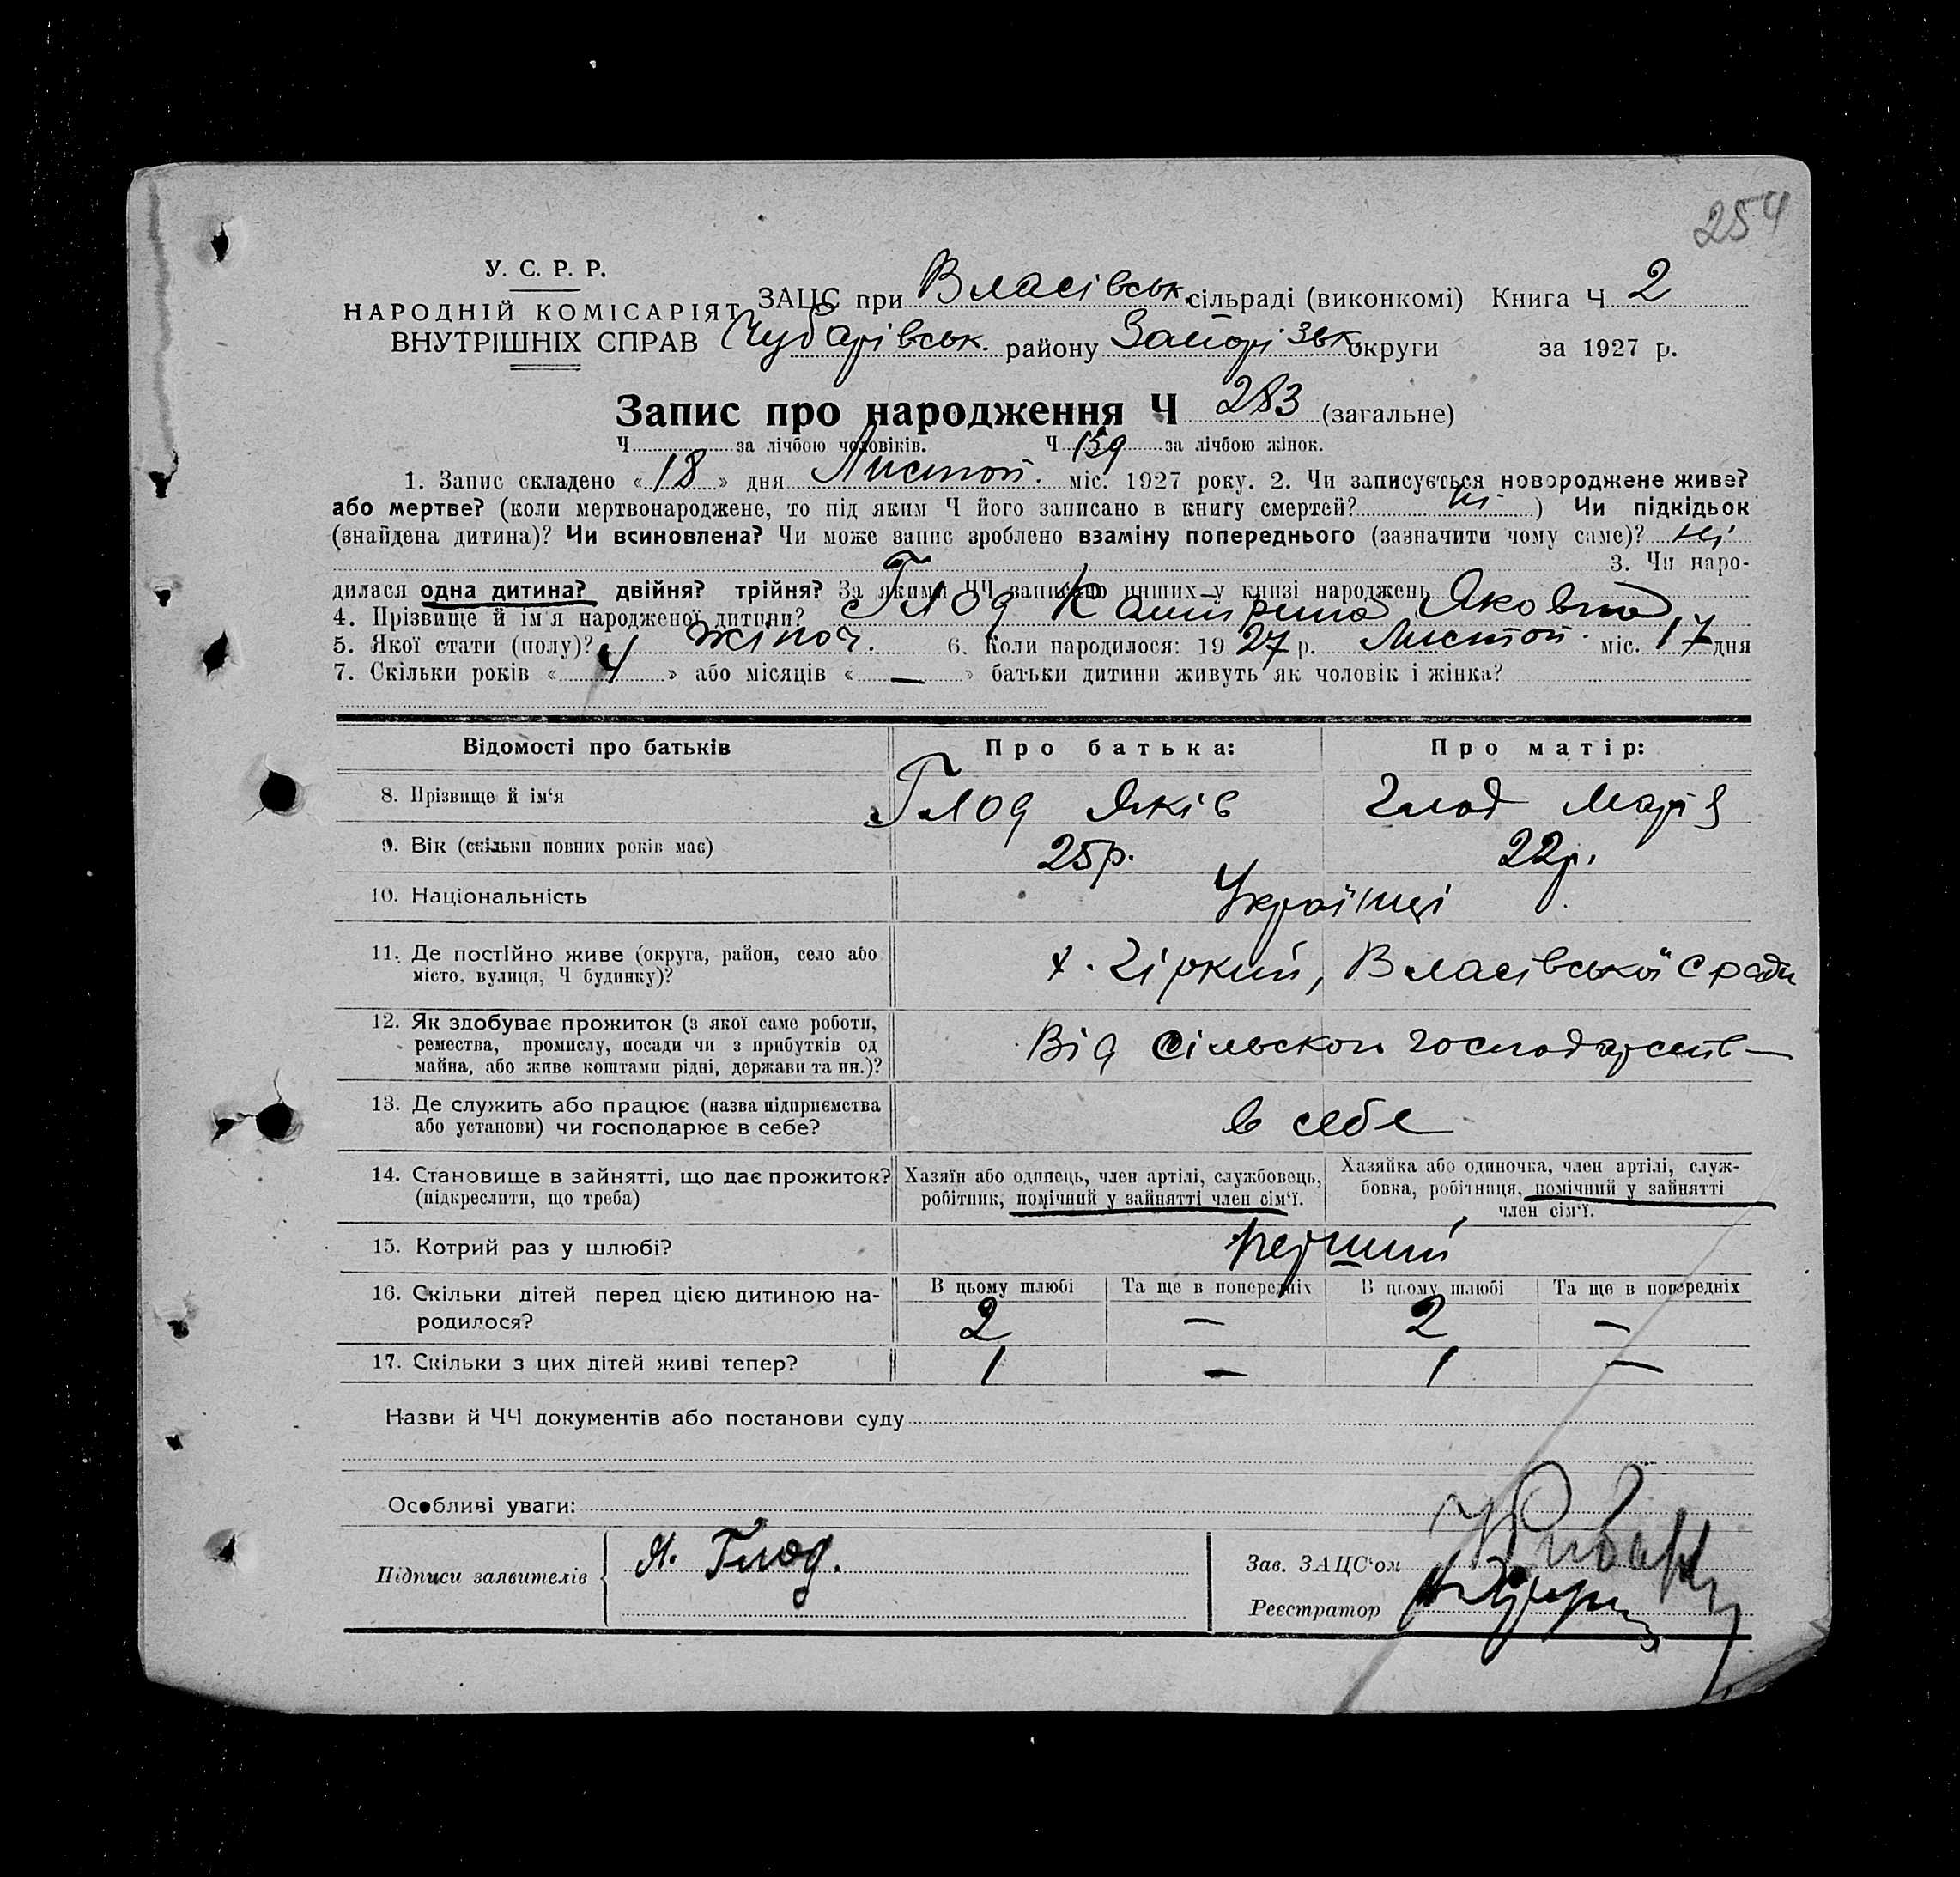 254
У. С. Р. Р.
НАРОДНІЙ КОМІСАРІЯТ
ВНУТРІШНІХ СПРАВ
ЗАЦС при Власівськ. сільраді (виконкомі) Книга Ч 2
Чубарівськ. району Запорізьк округи за 1927 р.
Запис про народження Ч 283 (загальне)
Ч за лічбою чоловіків. Ч 159 за лічбою жінок.
1. Запис складено « 18 » дня Листоп. міс. 1927 року. 2. Чи записується новороджене живе?
або мертве? (коли мертвонароджене, то під яким Ч його записано в книгу смертей? ні ) Чи підкідьок
(знайдена дитина)? Чи всиновлена? Чи може запис зроблено взаміну попереднього (зазначити чому саме)? ні
3. Чи наро-
дилася одна дитина? двійня? трійня? За якими ЧЧ записано инших у книзі народжень
4. Прізвище й ім'я народженої дитини? Глод Катирина Яковна
5. Якої стати (полу)? жіноч. 6. Коли народилося: 1927 р. Листоп. міс. 17 дня
7. Скільки років « 4 » або місяців « — » батьки дитини живуть як чоловік і жінка?
Відомості про батьків Про батька: Про матір:
8. Прізвище й ім'я Глод Яків Глод Марія
9. Вік (скільки повних років має) 25р. 22р.
10. Національність Українці
11. Де постійно живе (округа, район, село або
місто, вулиця, Ч будинку)? х. Гіркий, Власівської С ради
12. Як здобуває прожиток (з якої саме роботи,
ремества, промислу, посади чи з прибутків од
майна, або живе коштами рідні, держави та ин.)? Від сільского господарств—
13. Де служить або працює (назва підприємства
або установи) чи господарює в себе? в себе
14. Становище в зайнятті, що дає прожиток?
(підкреслити, що треба)
Хазяїн або одинець, член артілі, службовець,
робітник, помічний у зайнятті член сім'ї.
Хазяйка або одиночка, член артілі, служ-
бовка, робітниця, помічний у зайнятті
член сім'ї.
15. Котрий раз у шлюбі? перший
16. Скільки дітей перед цією дитиною на-
родилося?
В цьому шлюбі Та ще в попередніх В цьому шлюбі Та ще в попередніх
2 — 2 —
17. Скільки з цих дітей живі тепер? 1 — 1 —
Назви й ЧЧ документів або постанови суду
Особливі уваги:
Підписи заявителів Я. Глод.
Зав. ЗАЦС'ом
Реєстратор